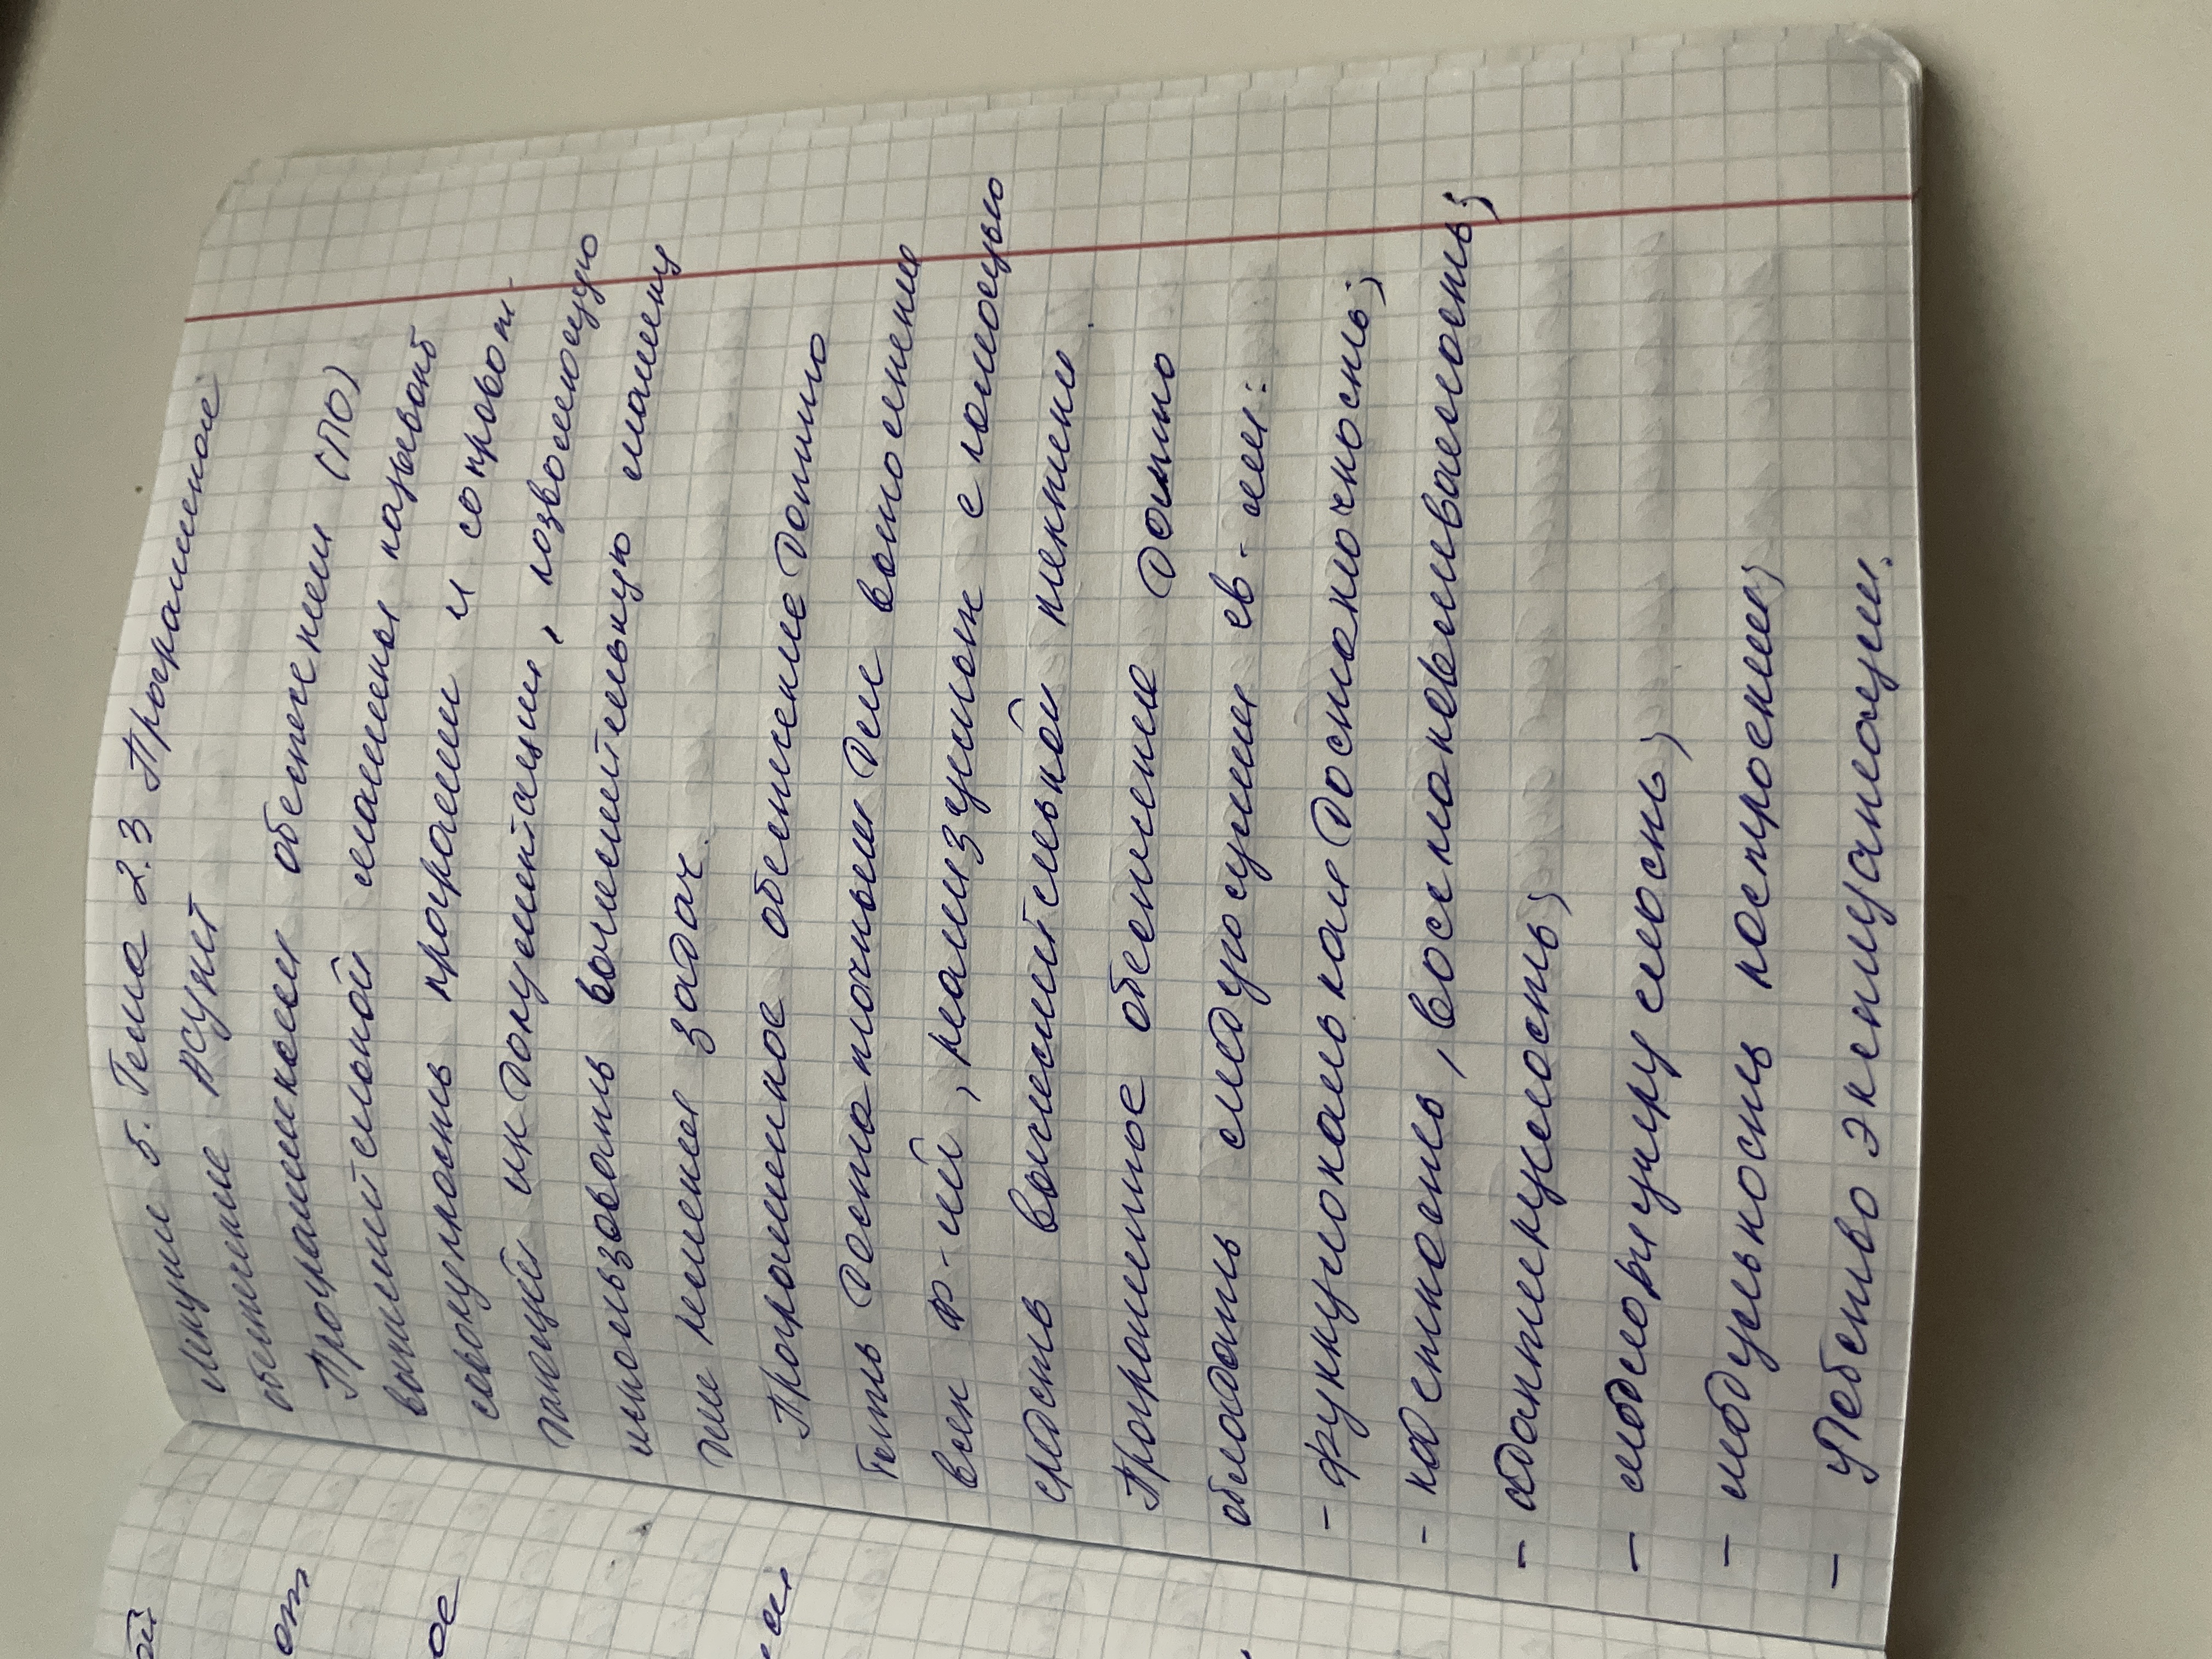 Лекция 5. Тема 2.3 Программное
обеспечение АСУиТ
Программным обеспечением (ПО)
вычислительной машины называют
совокупность программ и сопровож-
дающей их документации, позволяющую
использовать вычислительную машину
для решения задач.
Программное обеспечение должно
быть достаточным для выполнения
всех ф-ий, реализуемых с помощью
средств вычислительной техники.
Программное обеспечение должно
обладать следующими св-ми:
- функциональная достаточность;
- надежность, восстанавливаемость;
- адаптируемость;
- модифицируемость;
- модульность построения;
- удобство эксплуатации.
ой
от
ое